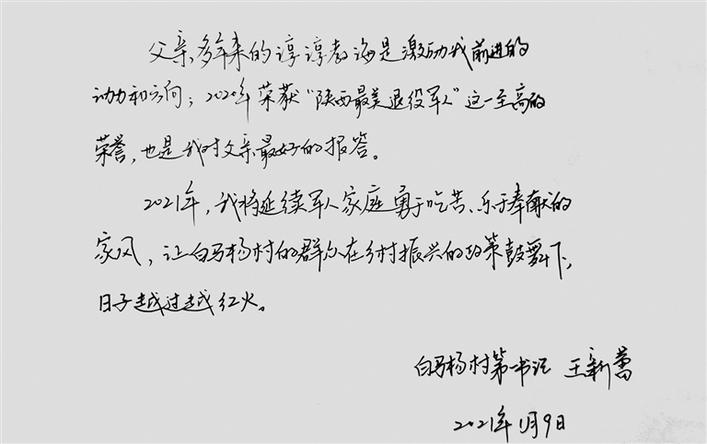 父亲多年来的谆谆教诲是激励我前进的
动力和方向；2020年荣获“陕西最美退役军人”这一至高的
荣誉，也是我对父亲最好的报答。
2021年，我将延续军人家庭勇于吃苦、乐于奉献的
家风，让白马杨村的群众在乡村振兴的政策鼓舞下，
日子越过越红火。
白马杨村第一书记 王新蕾
2021年1月9日